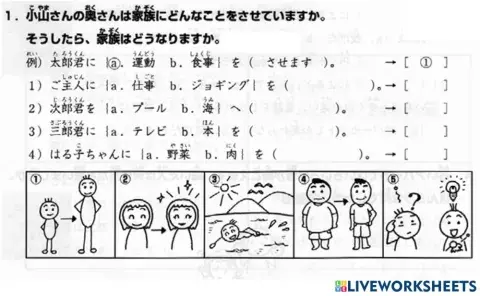 1. 小山さんの奥さんは家族にどんなことをさせていますか。
そうしたら、家族はどうなりますか。
例) 太郎君に {ⓐ. 運動 b. 食事} を ( させます )。 → [ ① ]
1) ご主人に {a. 仕事 b. ジョギング} を ( )。 → [ ]
2) 次郎君を {a. プール b. 海} へ ( )。 → [ ]
3) 三郎君に {a. テレビ b. 本} を ( )。 → [ ]
4) はる子ちゃんに {a. 野菜 b. 肉} を ( )。 → [ ]
① ② ③ ④ ⑤
?
LIVEWORKSHEETS